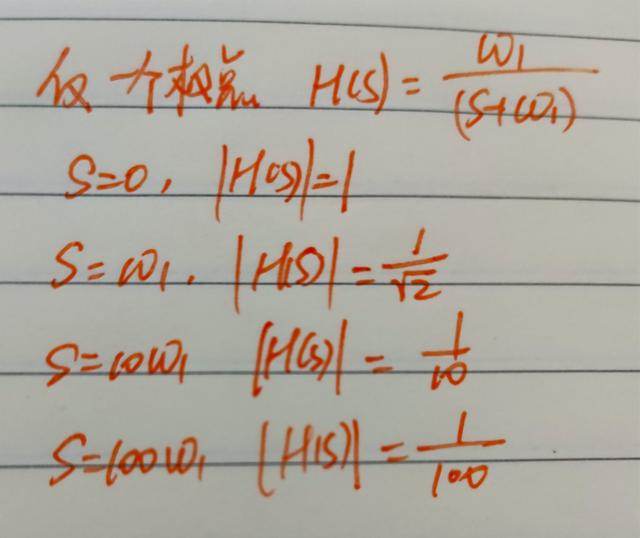 仅一个极点 H(s) = ω₁/(s+ω₁)
S=0, |H(s)|=1
S=ω₁, |H(s)|=1/√2
S=10ω₁ |H(s)|=1/10
S=100ω₁ |H(s)|=1/100